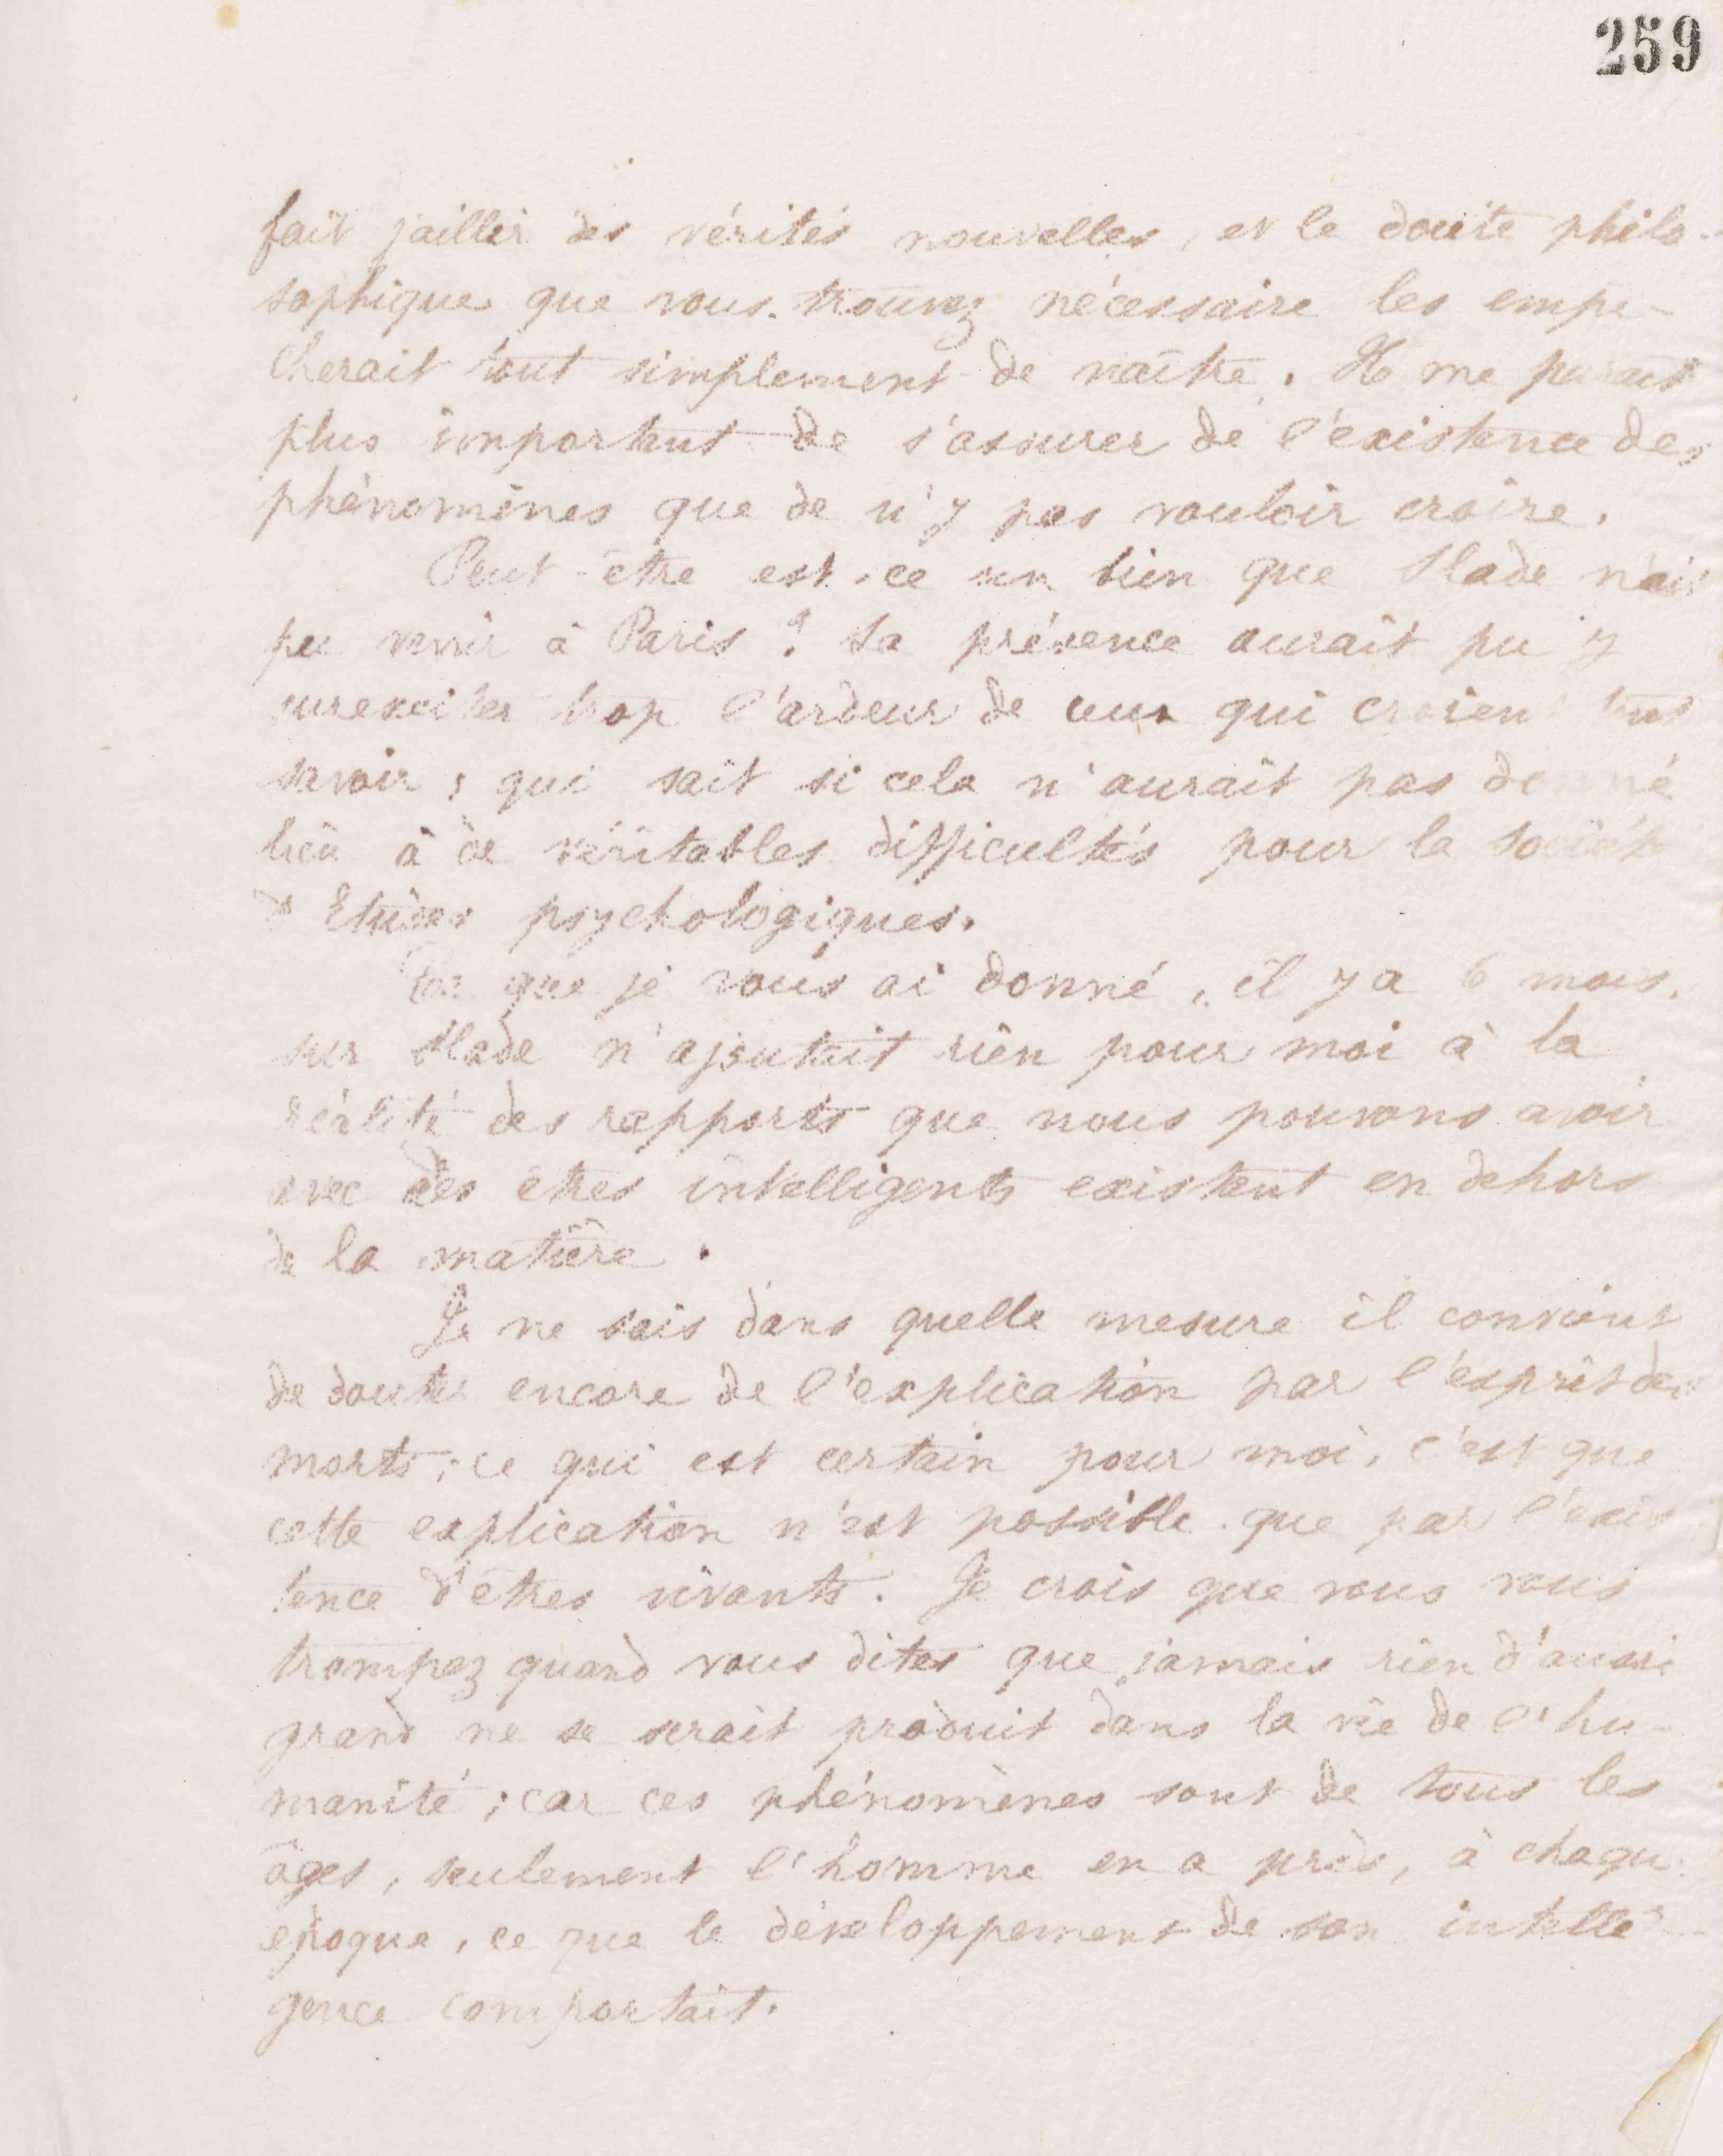 259
fait jaillir des vérités nouvelles, et le doute philo-
sophique que vous trouvez nécessaire les empe-
cherait tout simplement de naître. Il me parait
plus important de s'assurer de l'existence des
phénomènes que de n'y pas vouloir croire.
Peut-être est-ce un bien que Slade n'ait
pu venir à Paris ? Sa présence aurait pu y
surexciter trop l'ardeur de ceux qui croient sans
savoir ; qui sait si cela n'aurait pas donné
lieu à de véritables difficultés pour la société
d'Etudes psychologiques.
que je vous ai donné, il y a 6 mois,
sur Slade n'ajoutait rien pour moi à la
réalité des rapports que nous pouvons avoir
avec des êtres intelligents existant en dehors
de la matière.
Je ne sais dans quelle mesure il convient
de douter encore de l'explication par l'esprit des
morts ; ce qui est certain pour moi, c'est que
cette explication n'est possible que par l'exis
tence d'êtres vivants. Je crois que vous vous
trompez quand vous dites que jamais rien d'aussi
grand ne se serait produit dans la vie de l'hu-
manité ; car ces phénomènes sont de tous les
âges, seulement l'homme en a pris, à chaque
époque, ce que le développement de son intelli-
gence comportait.